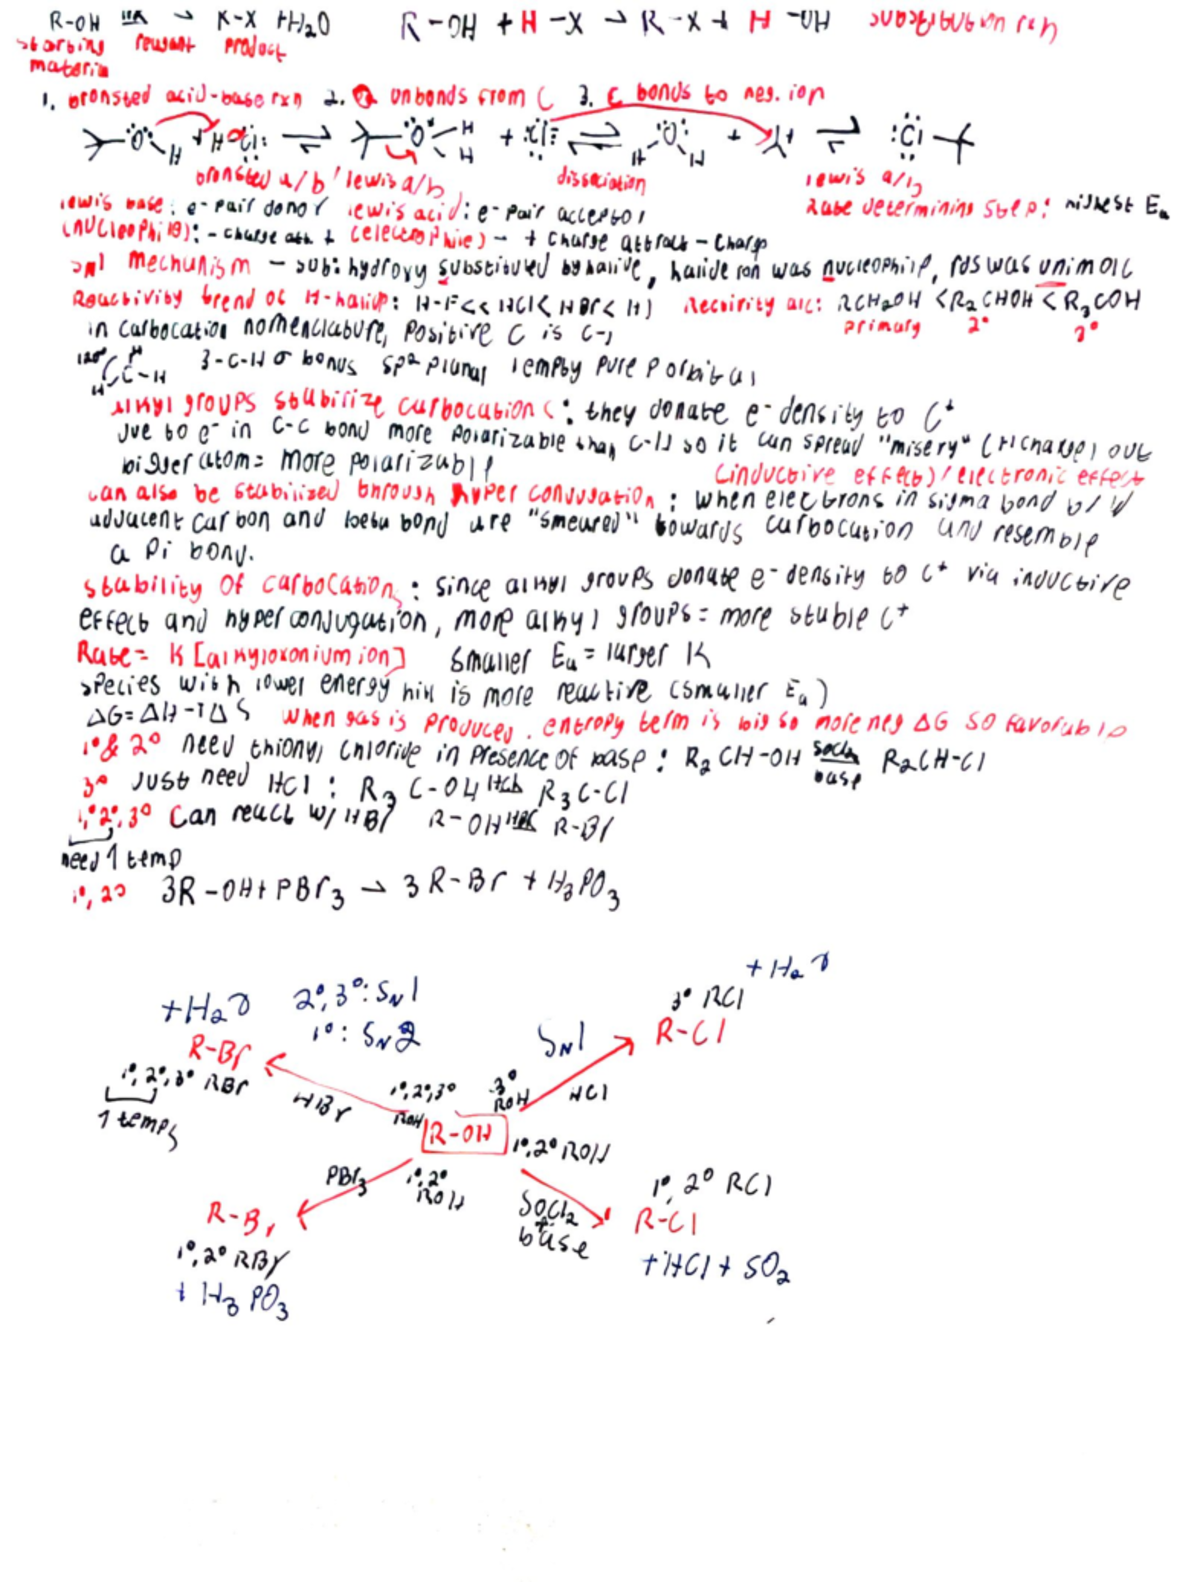 R-OH HX → R-X +H2O R-OH + H-X → R-X + H-OH substitution rxn
starting material reagent product
1. bronsted acid-base rxn 2. unbonds from C 3. C bonds to neg. ion
bronsted a/b lewis a/b dissociation lewis a/b
lewis base: e- pair donor lewis acid: e- pair acceptor Rate determining step: highest Ea
(nucleophile): - charge att + (electrophile) - + charge attract - charge
SN1 mechanism - sub: hydroxy substituted by halide, halide ion was nucleophile, rds was unimolc
Reactivity trend of H-halide: H-F<< HCl< HBr< HI Reactivity alc: RCH2OH < R2CHOH < R3COH
primary 2° 3°
in carbocation nomenclature, positive C is C-1
120° H C-H H 3-C-H σ bonds sp2 planar 1 empty pure p orbital
alkyl groups stabilize carbocations: they donate e- density to C+
due to e- in C-C bond more polarizable than C-H so it can spread "misery" (+ charge) out
bigger atom= more polarizable (inductive effect)/electronic effect
can also be stabilized through hyperconjugation: when electrons in sigma bond b/w
adjacent carbon and beta bond are "smeared" towards carbocation and resemble
a pi bond.
stability of carbocations: since alkyl groups donate e- density to C+ via inductive
effect and hyperconjugation, more alkyl groups= more stable C+
Rate= K[alkyloxonium ion] smaller Ea= larger K
species with lower energy hill is more reactive (smaller Ea)
ΔG=ΔH-TΔS when gas is produced, entropy term is big so more neg ΔG so favorable
1°& 2° need thionyl chloride in presence of base: R2CH-OH SOCl2 base R2CH-Cl
3° Just need HCl: R3C-OH HCl R3C-Cl
1°,2°,3° can react w/ HBr R-OH HBr R-Br
need ↑ temp
1°,2° 3R-OH+PBr3 → 3R-Br + H3PO3
+H2O 2°,3°: SN1 +H2O
1°: SN2 3° RCl
R-Br SN1 R-Cl
1°,2°,3° RBr HBr 1°,2°,3° ROH 3° ROH HCl
↑ temps R-OH 1°,2° ROH
PBr3 1°,2° ROH SOCl2 + base 1°, 2° RCl
R-Br R-Cl
1°,2° RBr +HCl + SO2
+ H3PO3